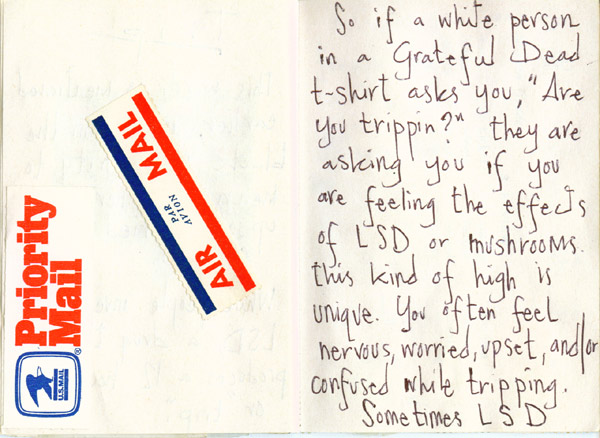 Priority
Mail
U.S. MAIL
®
AIR MAIL
PAR
AVION
So if a white person
in a Grateful Dead
t-shirt asks you, "Are
you trippin?" they are
asking you if you
are feeling the effects
of LSD or mushrooms.
this kind of high is
unique. You often feel
nervous, worried, upset, and/or
confused while tripping.
Sometimes LSD